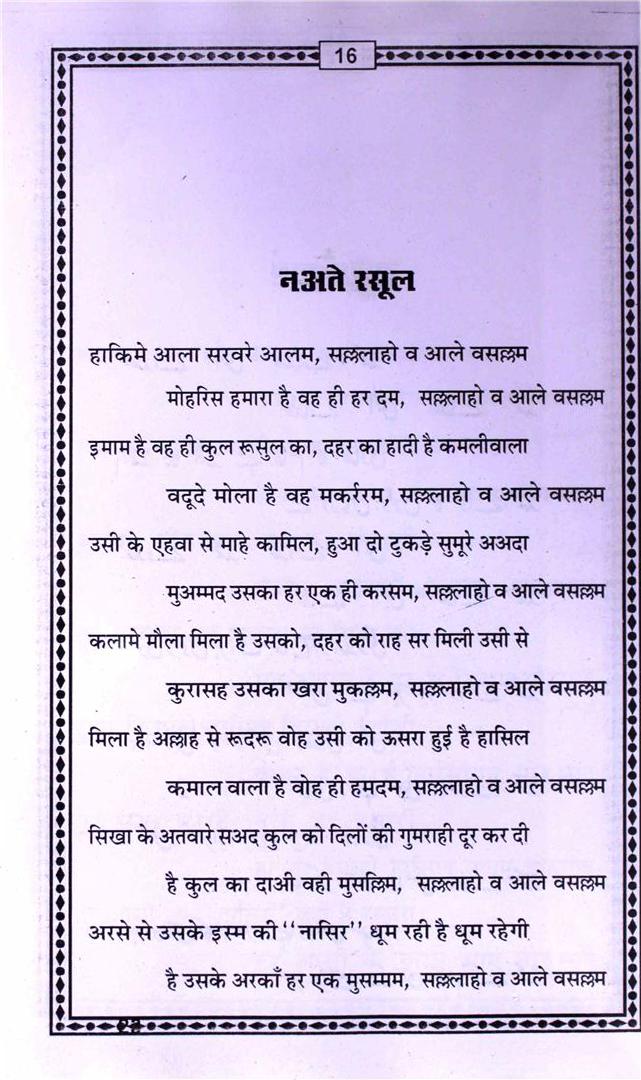 16
नअते रसूल
हाकिमे आला सरवरे आलम, सल्ललाहो व आले वसल्लम
मोहरिस हमारा है वह ही हर दम, सल्ललाहो व आले वसल्लम
इमाम है वह ही कुल रूसुल का, दहर का हादी है कमलीवाला
वदूदे मोला है वह मकर्ररम, सल्ललाहो व आले वसल्लम
उसी के एहवा से माहे कामिल, हुआ दो टुकड़े सुमूरे अअदा
मुअम्मद उसका हर एक ही करसम, सल्ललाहो व आले वसल्लम
कलामे मौला मिला है उसको, दहर को राह सर मिली उसी से
कुरासह उसका खरा मुकल्लम, सल्ललाहो व आले वसल्लम
मिला है अल्लाह से रूदरू वोह उसी को ऊसरा हुई है हासिल
कमाल वाला है वोह ही हमदम, सल्ललाहो व आले वसल्लम
सिखा के अतवारे सअद कुल को दिलों की गुमराही दूर कर दी
है कुल का दाअी वही मुसल्लिम, सल्ललाहो व आले वसल्लम
अरसे से उसके इस्म की ‘‘नासिर’’ धूम रही है धूम रहेगी
है उसके अरकाँ हर एक मुसम्मम, सल्ललाहो व आले वसल्लम